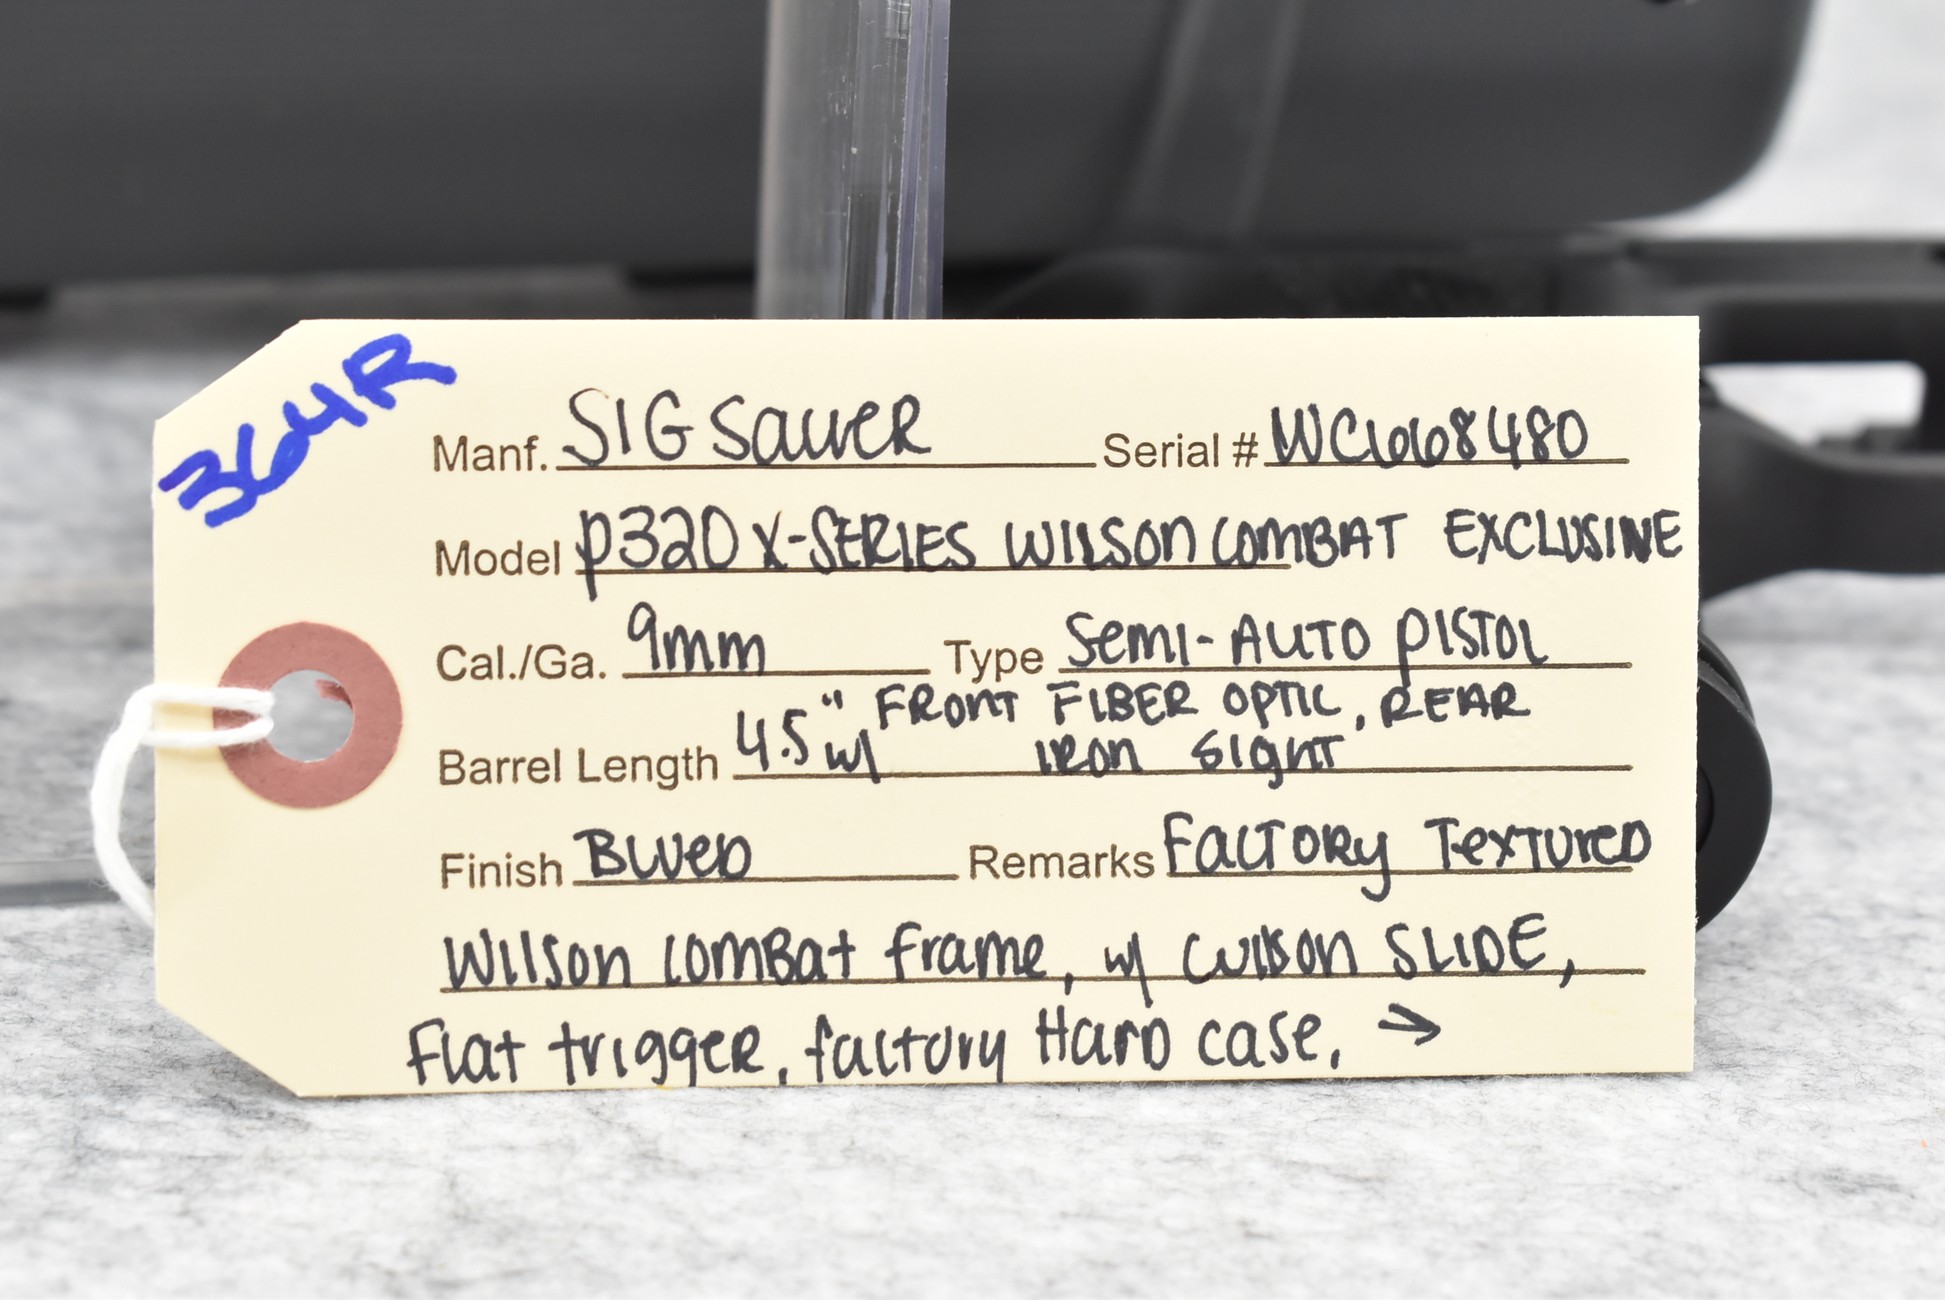 364R
Manf. SIG Sauer Serial # WC668480
Model P320 X-SERIES WILSON COMBAT EXCLUSIVE
Cal./Ga. 9mm Type Semi-AUTO PISTOL
Barrel Length 4.5" w/ FRONT FIBER OPTIC, REAR
IRON Sight
Finish Blued Remarks Factory Textured
Wilson Combat Frame, w/ Wilson SLIDE,
Flat trigger, factory Hard case, →